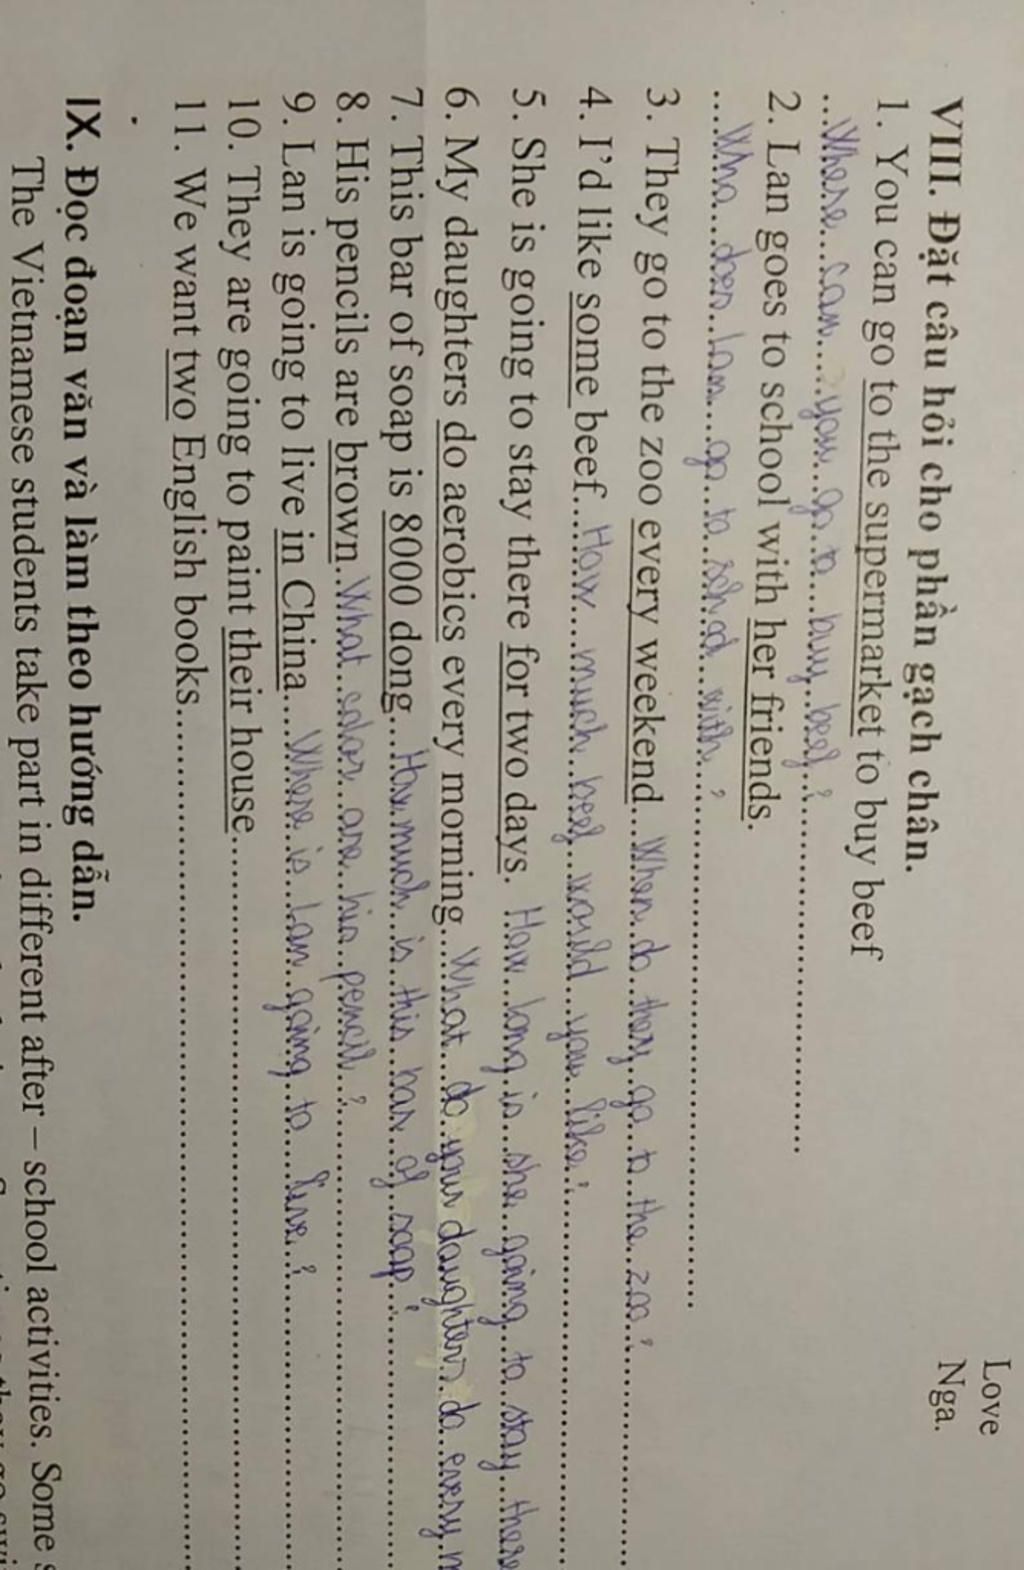 Love
Nga.
VIII. Đặt câu hỏi cho phần gạch chân.
1. You can go to the supermarket to buy beef
...Where...can.....you...go..to....buy..beef..?
2. Lan goes to school with her friends.
....Who...does..Lan...go..to..school...with..?
3. They go to the zoo every weekend...When..do..they..go..to..the..zoo.?
4. I'd like some beef....How....much..beef..would..you..like.?
5. She is going to stay there for two days. How..long..is..she..going..to..stay..there
6. My daughters do aerobics every morning...What...do..your daughters..do..every
7. This bar of soap is 8000 dong...How.much..is..this..bar..of..soap.?
8. His pencils are brown..What...color..are..his..pencil..?
9. Lan is going to live in China....Where..is..Lan..going..to...live..?
10. They are going to paint their house
11. We want two English books
IX. Đọc đoạn văn và làm theo hướng dẫn.
The Vietnamese students take part in different after – school activities. Some